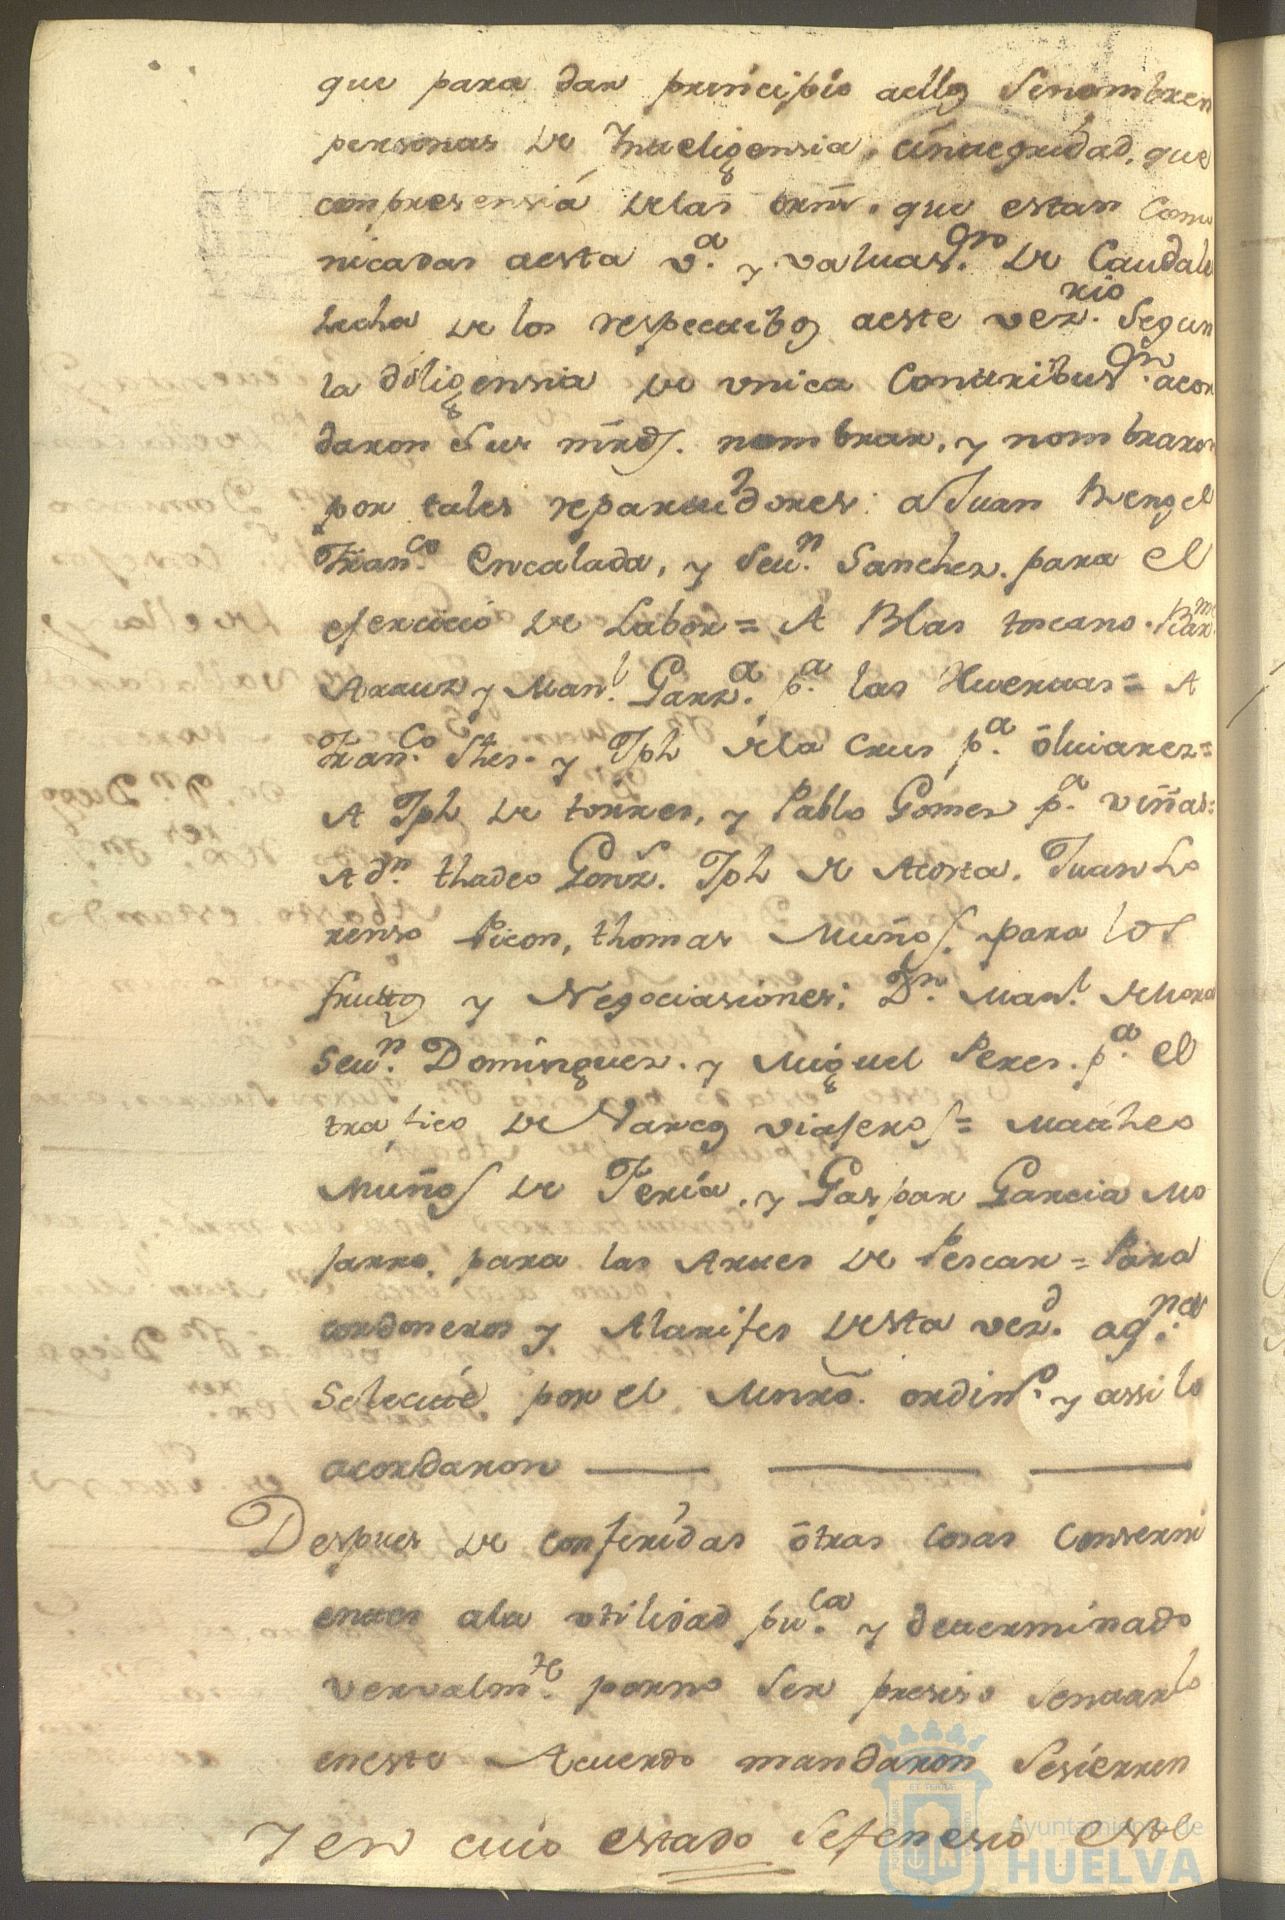 que para dar principio aello Senombren
personas de Inteligensia, eintegridad, que
conpresensiá delas orns. que estan Comu
nicadas aesta v.ª y valuas.on de Caudale
hecha de los respectibos aeste vez.rio Segun
la diligensia de vnica Contribus.on acor
daron Sus mrds. nombrar, y nombraron
por tales repartidores: a Juan Rengel
Fran.co Encalada, y Seu.n Sanches. para el
efercicio de Labor = A Blas toscano. Bar.me
Arauz y Man.l Garz.a p.a las Huertas = A
Fran.co Shes. y Jph dela Crus p.a ōluiares =
A Jph de torres, y Pablo Gomes p.a viñas =
A d.n thadeo Gonz.s Jph de Acosta. Juan Lo
renso Picon, thomas Muños. para los
frutos y Negociasiones: D.n Man.l de Mora
Seu.n Domingues. y Miguel Peres. p.a el
trafico de Varcos viajeros = Matheo
Muños de Feria, y Gaspar Garcia Mo
jarro, para las Artes de Pescar = Para
cordoneros y Alarifes desta vez.d aq.nes
Selecité por el Mnro. ordin.o y assi lo
acordaron
Despues de conferidas ōtras cosas Conserni
entes ala vtilidad pu.ca y determinado
vervalm.te porno Ser presiso Sentarlo
eneste Acuerdo mandaron Sesierren
Y en cuio estado Sefenesio este
Ayuntamiento de
HUELVA